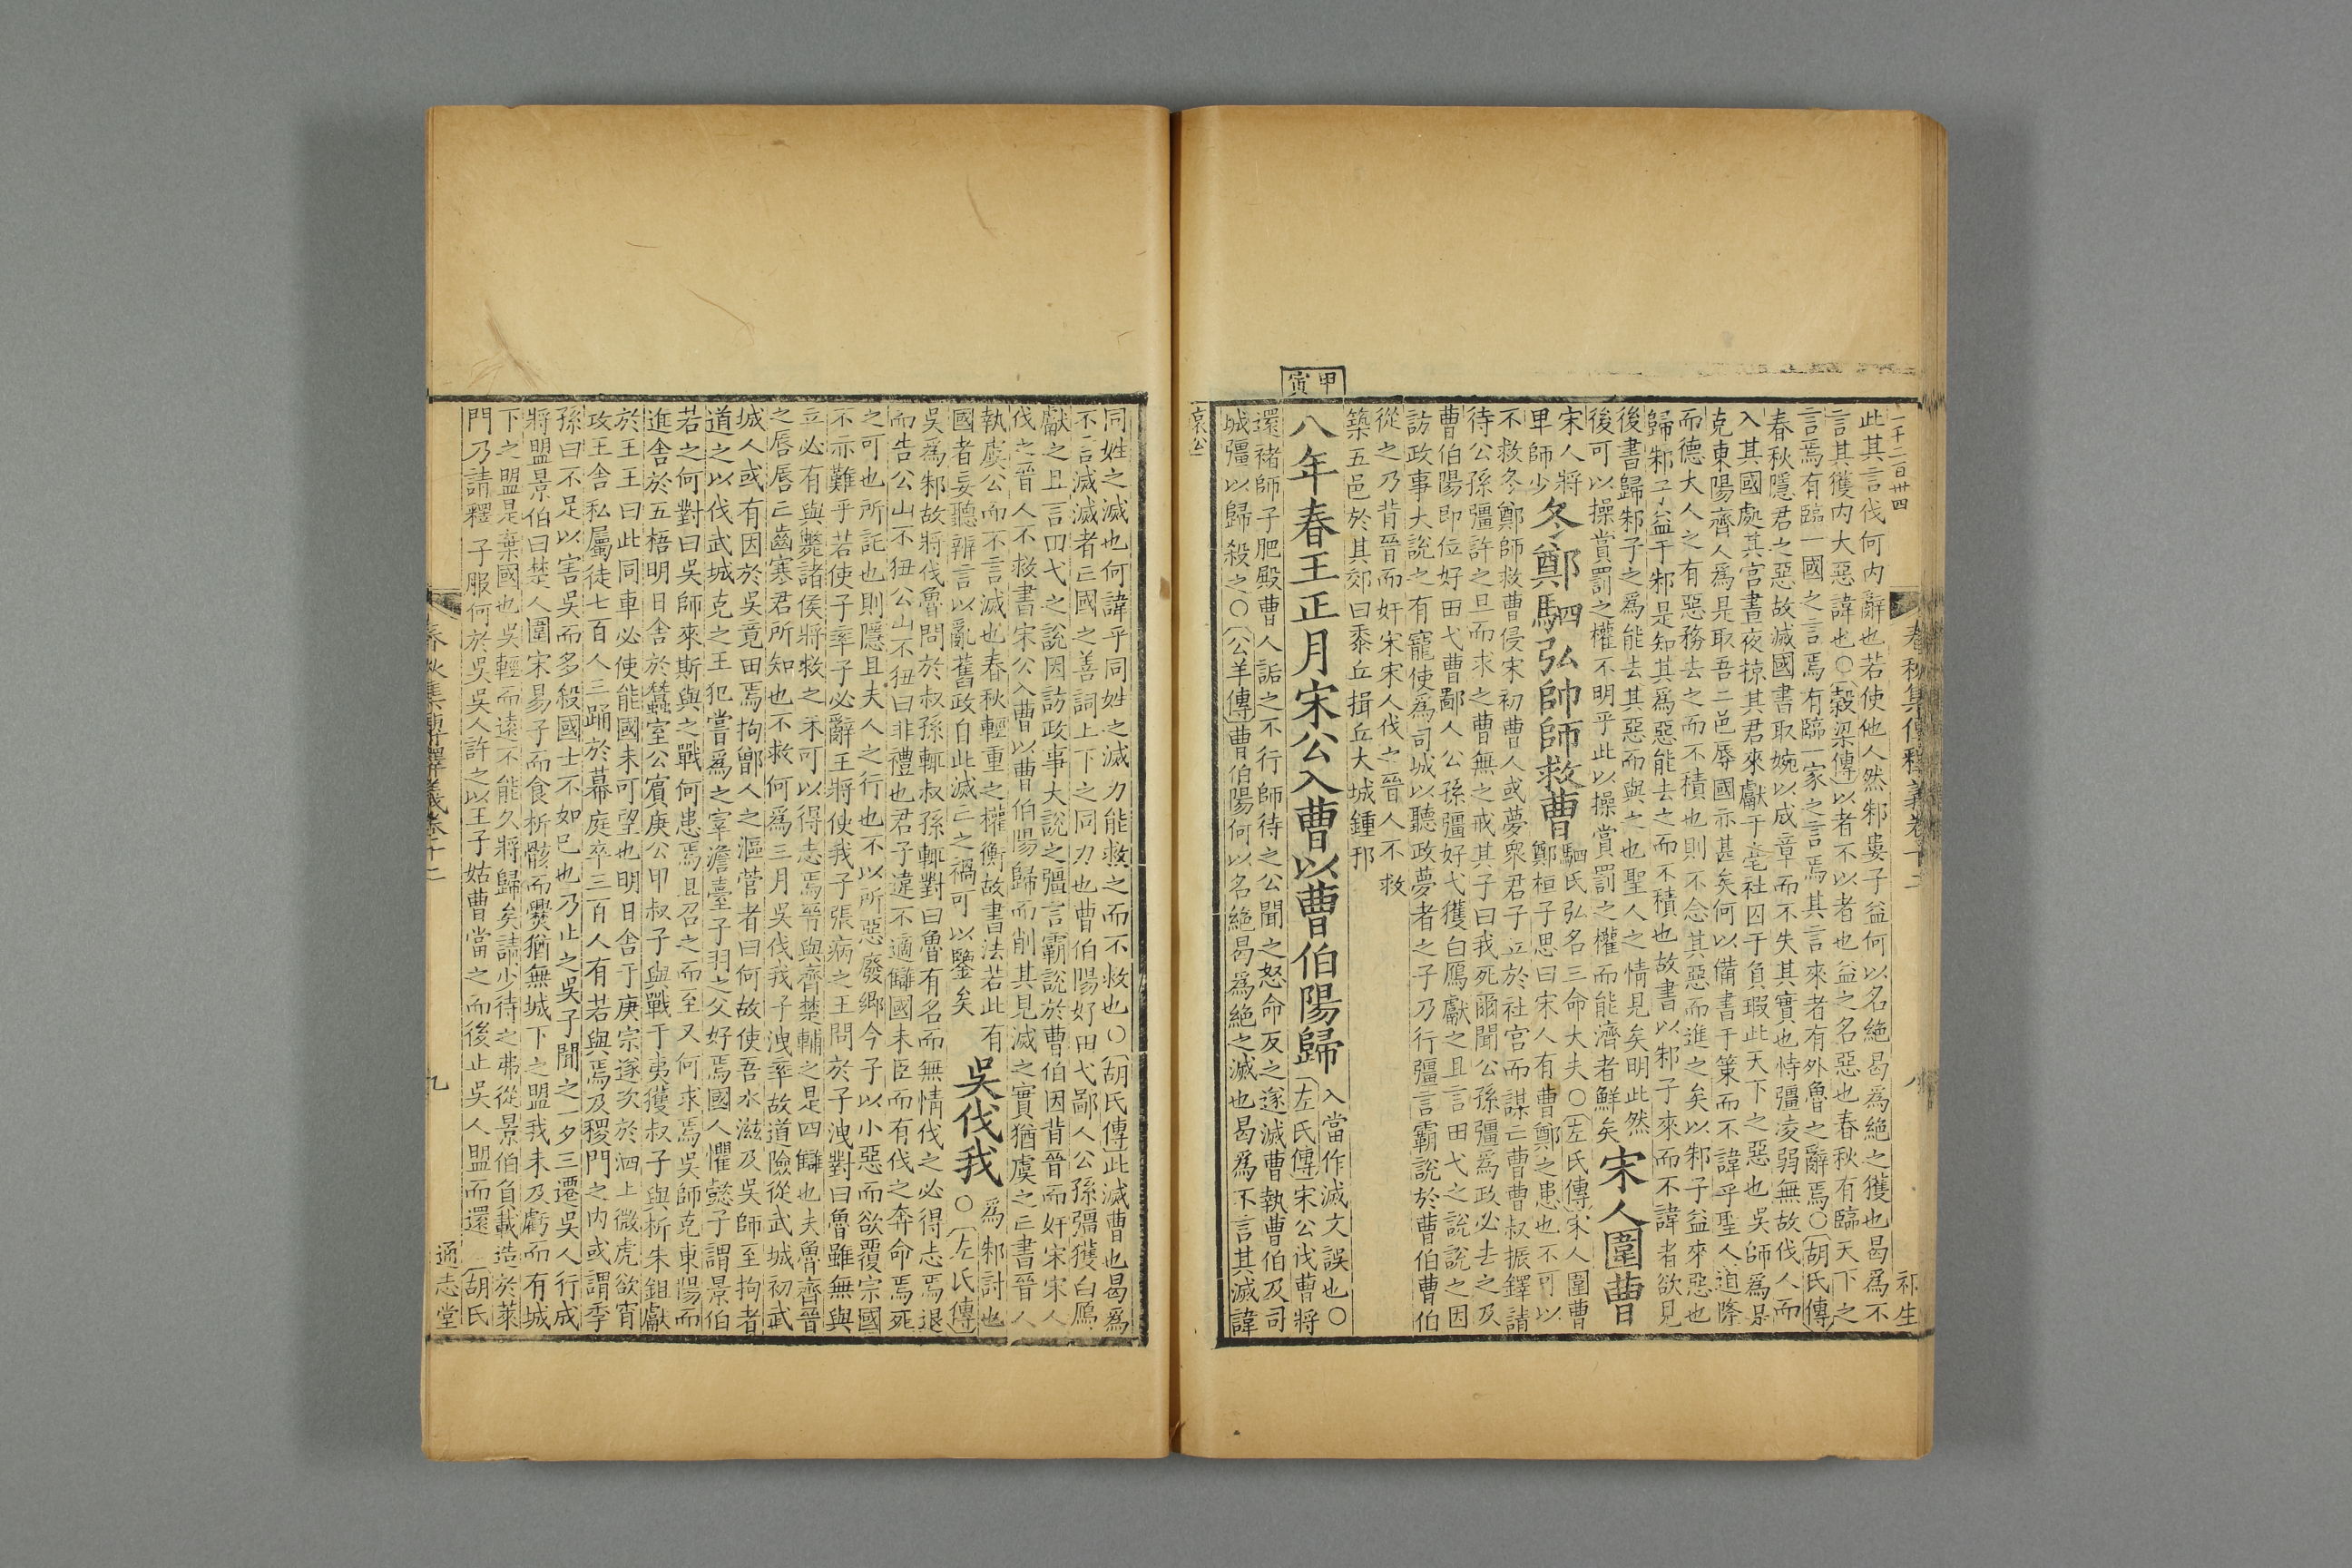 一千二百卅四
春秋集傳釋義卷十二
八
祁生
此其言伐何内辭也若使他人然邾婁子益何以名絶曷爲絶之獲也曷爲不
言其獲内大惡諱也○穀梁傳以者不以者也益之名惡也春秋有臨天下之
言焉有臨一國之言焉有臨一家之言焉其言來者有外魯之辭焉○胡氏傳
春秋隱君之惡故滅國書取婉以成章而不失其實也恃彊凌弱無故伐人而
入其國處其宫晝夜掠其君來獻于亳社囚于負瑕此天下之惡也吳師爲是
克東陽齊人爲是取吾二邑辱國亦甚矣何以備書于策而不諱乎聖人道隆
而德大人之有惡務去之而不積也則不念其惡而進之矣以邾子益來惡也
歸邾子益于邾是知其爲惡能去之而不積也故書以邾子來而不諱者欲見
後書歸邾子之爲能去其惡而與之也聖人之情見矣明此然
後可以操賞罰之權不明乎此以操賞罰之權而能濟者鮮矣
宋人圍曹
宋人將
卑師少
冬鄭駟弘帥師救曹
駟氏弘名三命大夫○左氏傳宋人圍曹
鄭桓子思曰宋人有曹鄭之患也不可以
不救冬鄭師救曹侵宋初曹人或夢衆君子立於社宫而謀亡曹曹叔振鐸請
待公孫彊許之旦而求之曹無之戒其子曰我死爾聞公孫彊爲政必去之及
曹伯陽即位好田弋曹鄙人公孫彊好弋獲白鴈獻之且言田弋之說說之因
訪政事大說之有寵使爲司城以聽政夢者之子乃行彊言霸說於曹伯曹伯
從之乃背晉而奸宋宋人伐之晉人不救
築五邑於其郊曰黍丘揖丘大城鍾邘
甲寅
八年春王正月宋公入曹以曹伯陽歸
入當作滅文誤也○
左氏傳宋公伐曹將
還褚師子肥殿曹人詬之不行師待之公聞之怒命反之遂滅曹執曹伯及司
城彊以歸殺之○公羊傳曹伯陽何以名絶曷爲絶之滅也曷爲不言其滅諱
哀公
同姓之滅也何諱乎同姓之滅力能救之而不救也○胡氏傳此滅曹也曷爲
不言滅滅者亡國之善詞上下之同力也曹伯陽好田弋鄙人公孫彊獲白鴈
獻之且言田弋之說因訪政事大說之彊言霸說於曹伯因背晉而奸宋宋人
伐之晉人不救書宋公入曹以曹伯陽歸而削其見滅之實猶虞之亡書晉人
執虞公而不言滅也春秋輕重之權衡故書法若此有
國者妄聽辨言以亂舊政自此滅亡之禍可以鑒矣
吳伐我
爲邾討也
○左氏傳
吳爲邾故將伐魯問於叔孫輒叔孫輒對曰魯有名而無情伐之必得志焉退
而告公山不狃公山不狃曰非禮也君子違不適讎國未臣而有伐之奔命焉死
之可也所託也則隱且夫人之行也不以所惡廢鄉今子以小惡而欲覆宗國
不亦難乎若使子率子必辭王將使我子張病之王問於子洩對曰魯雖無與
立必有與斃諸侯將救之未可以得志焉晉與齊楚輔之是四讎也夫魯齊晉
之唇唇亡齒寒君所知也不救何爲三月吳伐我子洩率故道險從武城初武
城人或有因於吳竟田焉拘鄫人之漚菅者曰何故使吾水滋及吳師至拘者
道之以伐武城克之王犯嘗爲之宰澹臺子羽之父好焉國人懼懿子謂景伯
若之何對曰吳師來斯與之戰何患焉且召之而至又何求焉吳師克東陽而
進舍於五梧明日舍於蠶室公賓庚公甲叔子與戰于夷獲叔子與析朱鉏獻
於王王曰此同車必使能國未可望也明日舍于庚宗遂次於泗上微虎欲宵
攻王舍私屬徒七百人三踊於幕庭卒三百人有若與焉及稷門之内或謂季
孫曰不足以害吳而多殺國士不如已也乃止之吳子聞之一夕三遷吳人行成
將盟景伯曰楚人圍宋易子而食析骸而爨猶無城下之盟我未及虧而有城
下之盟是棄國也吳輕而遠不能久將歸矣請少待之弗從景伯負載造於萊
門乃請釋子服何於吳吳人許之以王子姑曹當之而後止吳人盟而還胡氏
春秋集傳釋義卷十二
九
通志堂